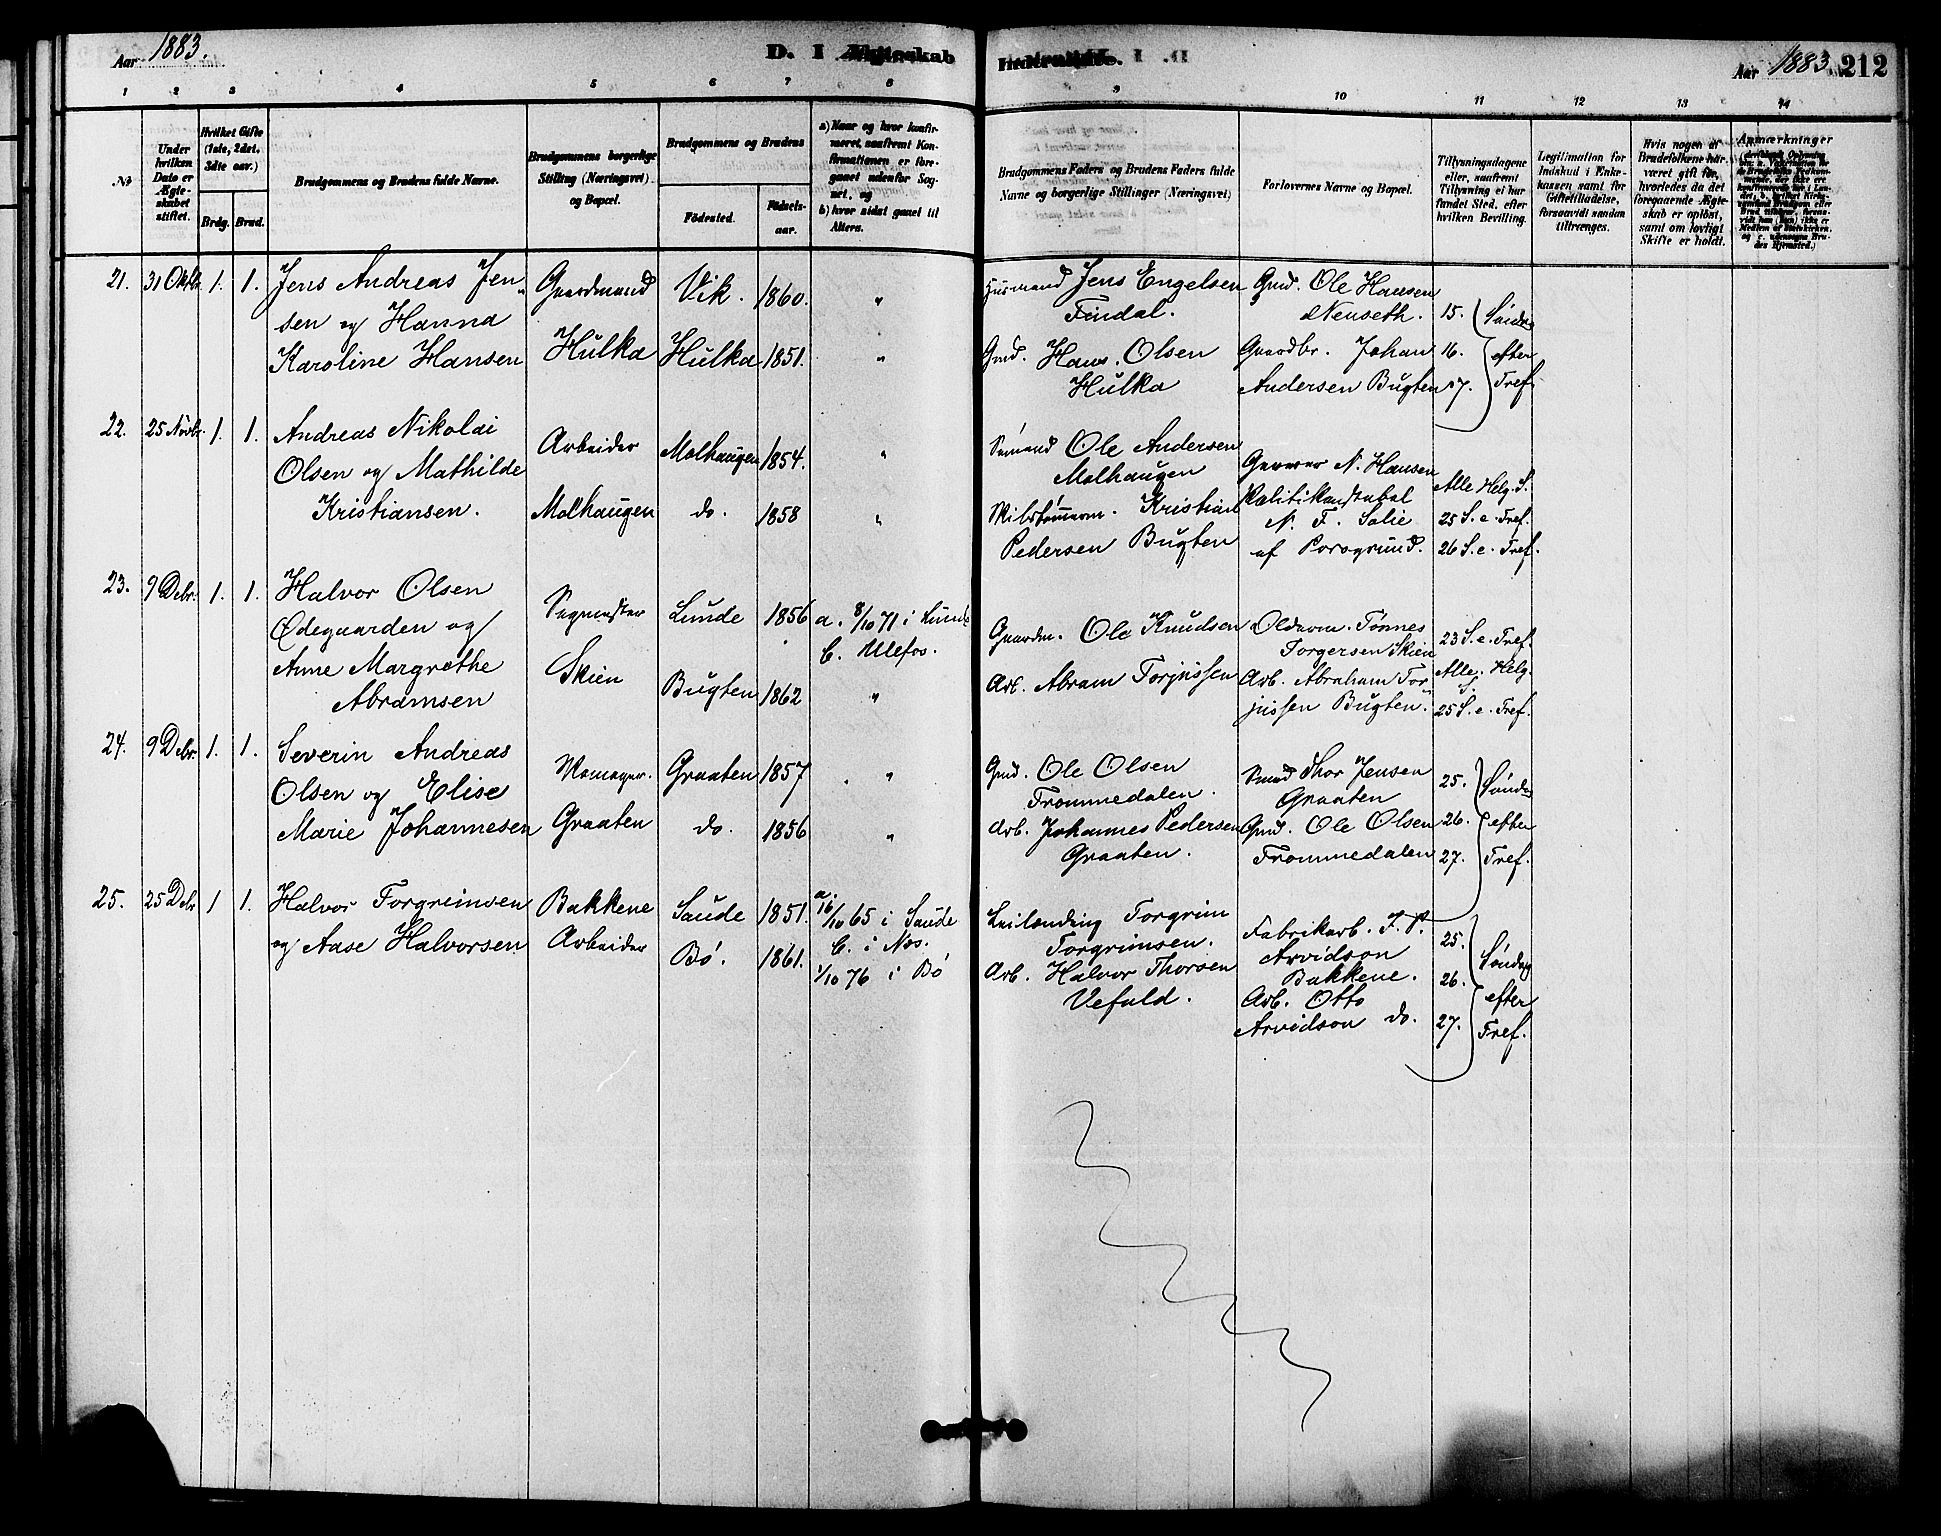 Aar 1883.
D. I Ægteskab
Indtraadte.
Aar 1883. 212
1 2 3 4 5 6 7 8
9 10 11 12 13 14
No
Under hvilken Dato er Ægteskabet stiftet.
Hvilket Gifte (1ste, 2det, 3die osv.)
Brdg. Brud.
Brudgommens og Brudens fulde Navne.
Brudgommens borgerlige Stilling (Næringsvei) og Bopæl.
Brudgommens og Brudens
Födested.
Födselsaar.
a) Naar og hvor konfirmeret, saafremt Konfirmationen er foregaaet udenfor Sognet, og
b) hvor sidst gaaet til Alters.
Brudgommens Faders og Brudens Faders fulde Navne og borgerlige Stillinger (Næringsvei)
Forlovernes Navne og Bopæl.
Tillysningsdagene eller, saafremt Tillysning ei har fundet Sted, efter hvilken Bevilling.
Legitimation for Indskud i Enkekassen samt for Giftetilladelse, forsaavidt saadan tiltrænges.
Hvis nogen af Brudefolkene har været gift för, hvorledes da det foregaaende Ægteskab er oplöst, samt om lovligt Skifte er holdt.
Anmærkninger
21. 31 Oktbr. 1. 1. Jens Andreas Jen-
sen og Hanna
Karoline Hansen
Gaardmand
Hulka
Vik. 1860. "
Hulka 1851. "
Husmand Jens Engelsen
Findal.
Gmd. Hans Olsen
Hulka
Gmd. Ole Hansen
Neuseth.
Gaardbr. Johan
Andersen Bugten
15.
16.
17.
Sönd.
efter
Tref.
22. 25 Novbr. 1. 1. Andreas Nikolai
Olsen og Mathilde
Kristiansen.
Arbeider
Molhaugen
Molhaugen 1854. "
do. 1858 "
Sömand Ole Andersen
Molhaugen
Skibstömmerm. Kristian
Pedersen Bugten
Garver N. Hansen
Politikonstabel
N. F. Salie
af Porsgrund.
Alle Helg. S.
25 S. e. Tref.
26 S. e. Tref.
23. 9 Debr. 1. 1. Halvor Olsen
Ödegaarden og
Anne Margrethe
Abramsen
Sagmester
Skien
Lunde 1856 a. 8/10 71 i Lunde
b. Ulefos.
Bugten 1862 "
Gaardm. Ole Knudsen
Arb. Abram Torjussen
Olderm. Tönnes
Torgersen Skien
Arb. Abraham Tor-
jussen Bugten.
23 S. e. Tref.
Alle Helg.
S.
25 S. e. Tref.
24. 9 Debr. 1. 1. Severin Andreas
Olsen og Elise
Marie Johannesen
Graaten
Graaten 1857 "
do. 1856 "
Gmd. Ole Olsen
Trommedalen.
Arb. Johannes Pedersen
Graaten.
Smed Thor Jensen
Graaten
Gmd. Ole Olsen
Trommedalen
25.
26.
27.
Sönd.
efter
Tref.
25. 25 Debr 1 1. Halvor Torgrimsen
og Aase Halvorsen
Bakkene
Arbeider
Saude 1851. a. 16/10 65 i Saude
b. i Næs.
Bö. 1861. 1/10 76 i Bö
Leilending Torgrim
Torgrimsen.
Arb. Halvor Thorsen
Vefald.
Fabrikarb. J. P.
Arvidson
Bakkene.
Arb. Otto
Arvidson do.
25.
26.
27.
Söndag
efter
Tref.